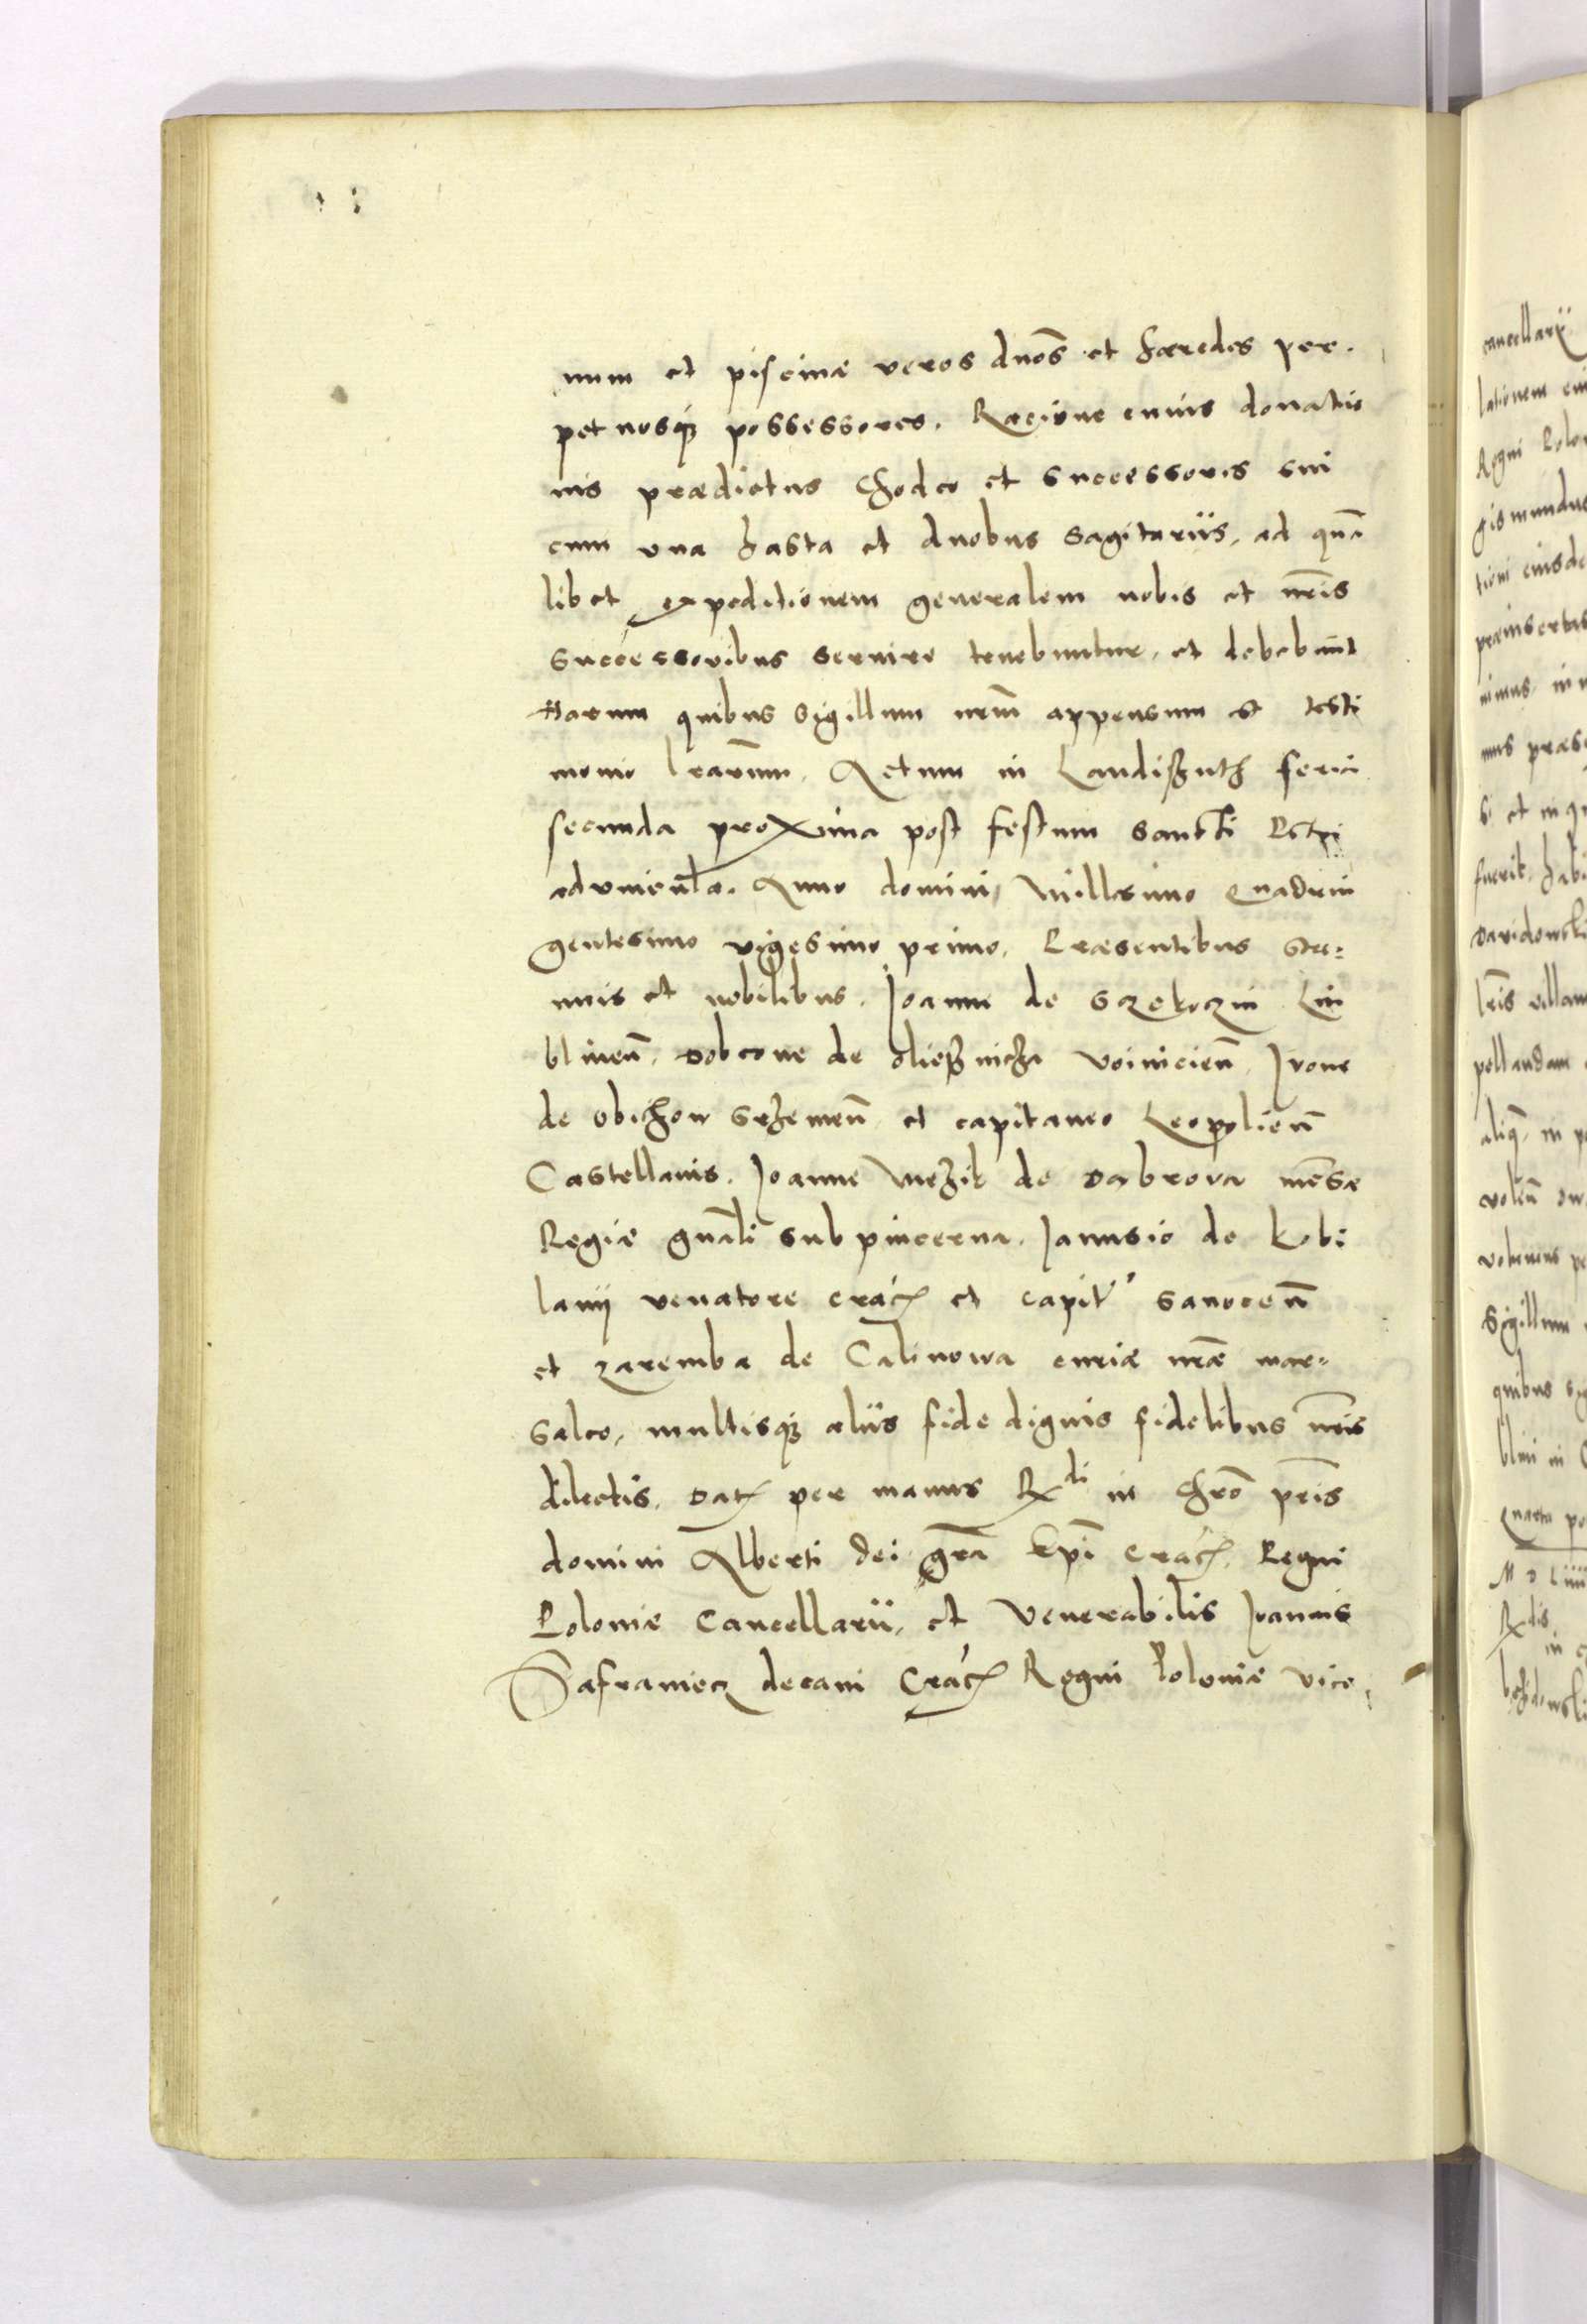 num et piscinæ veros dnōs et hæredes per-
petuosq3 possessores. Racione cuius donatio
nis prædictus Chodco et Successores sui
cum una hasta et duobus sagitariis, ad quā
libet expeditionem generalem nobis et nr̄is
Successoribus servire tenebuntur, et debebunt
Harum quibus Sigillum nrm̄ appensum est testi
monio lrarūm. Actum in Landishuth feria
secunda proxima post festum sancti Petri
ad vincula. Anno domini, Millesimo Quadrin
gentesimo vigesimo primo. Præsentibus stre=
nuis et nobilibus. Joanne de Szekoczin Lu
blineñ. Dobcone de Oliesznicza Voinicieñ. Ivone
de Obichow Srzemeñ et capitaneo Leopolieñ
Castellanis. Joanne Mezik de Dabrova mēsæ
Regiæ gnāli subpincerna. Janusio de Kobi
lany venatore Crac̄ et Capit Sanoceñ
et Zaremba de Calinowa curiæ nrǣ mar=
salco, multisq3 aliis fide dignis fidelibus nr̄is
dilectis. Dat per manus Rdi in Chrō pr̄is
domini Alberti dei gr̄a Epī Crac̄. Regni
Poloniæ Cancellarii, et Venerabilis Joannis
Safraniecz decani Crac̄ Regni Poloniæ vice
cancellarii
lationem
Regni
gismundus
præinsertas
nimus
fuerit
Davidowski
lr̄is villam
Sigillum
quibus
blini in